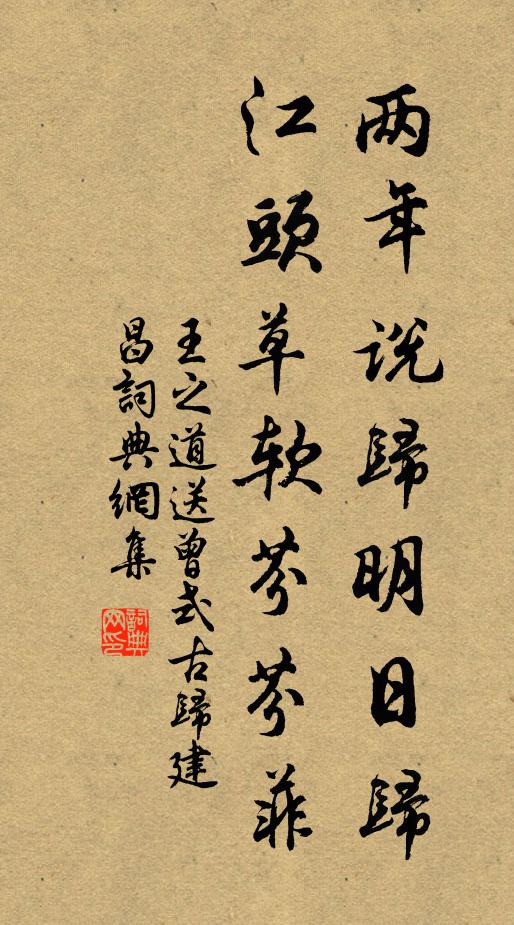 两年说歸明日歸
江頭草软芬芬菲
王之道送曾式古歸建
昌詞典網集
詞典网印